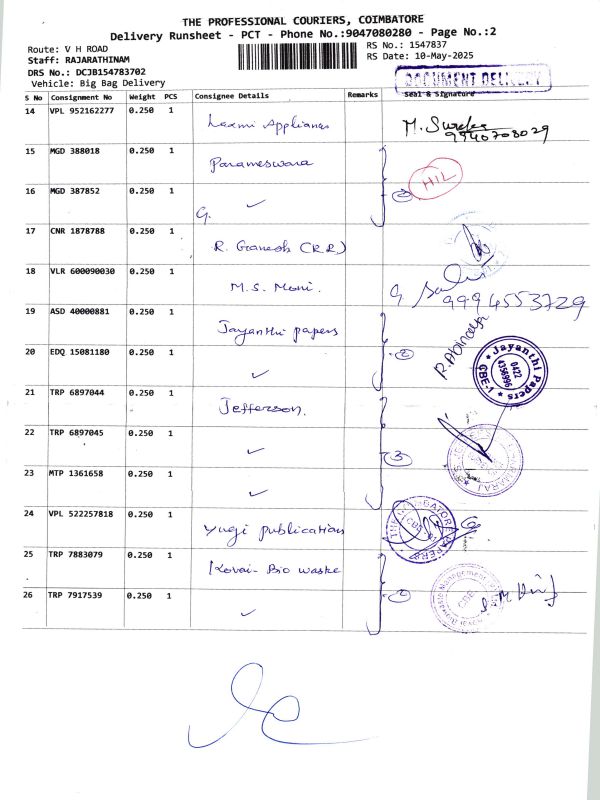 THE PROFESSIONAL COURIERS, COIMBATORE
Delivery Runsheet - PCT - Phone No.:9047080280 - Page No.:2
Route: V H ROAD
RS No.: 1547837
Staff: RAJARATHINAM
RS Date: 10-May-2025
DRS No.: DCJB154783702
Vehicle: Big Bag Delivery
DOCUMENT DELIVERY
S No Consignment No Weight PCS Consignee Details Remarks Seal & Signature
14 VPL 952162277 0.250 1
Laxmi Appliances
15 MGD 388018 0.250 1
Parameswara
16 MGD 387852 0.250 1
G. ✓
② HIL
17 CNR 1878788 0.250 1
R. Ganesh (R.R.)
18 VLR 600090030 0.250 1
M.S. Moni.
9994553729
19 ASD 40000881 0.250 1
Jayanthi papers
20 EDQ 15081180 0.250 1
✓ ②
R. Abinaya
Jayanthi Papers
0422
4356996
CBE-1
21 TRP 6897044 0.250 1
Jefferson.
22 TRP 6897045 0.250 1
✓ ③
23 MTP 1361658 0.250 1
✓
24 VPL 522257818 0.250 1
Yugi publication
25 TRP 7883079 0.250 1
Kovai-Bio waste
26 TRP 7917539 0.250 1
✓ ②
CBE